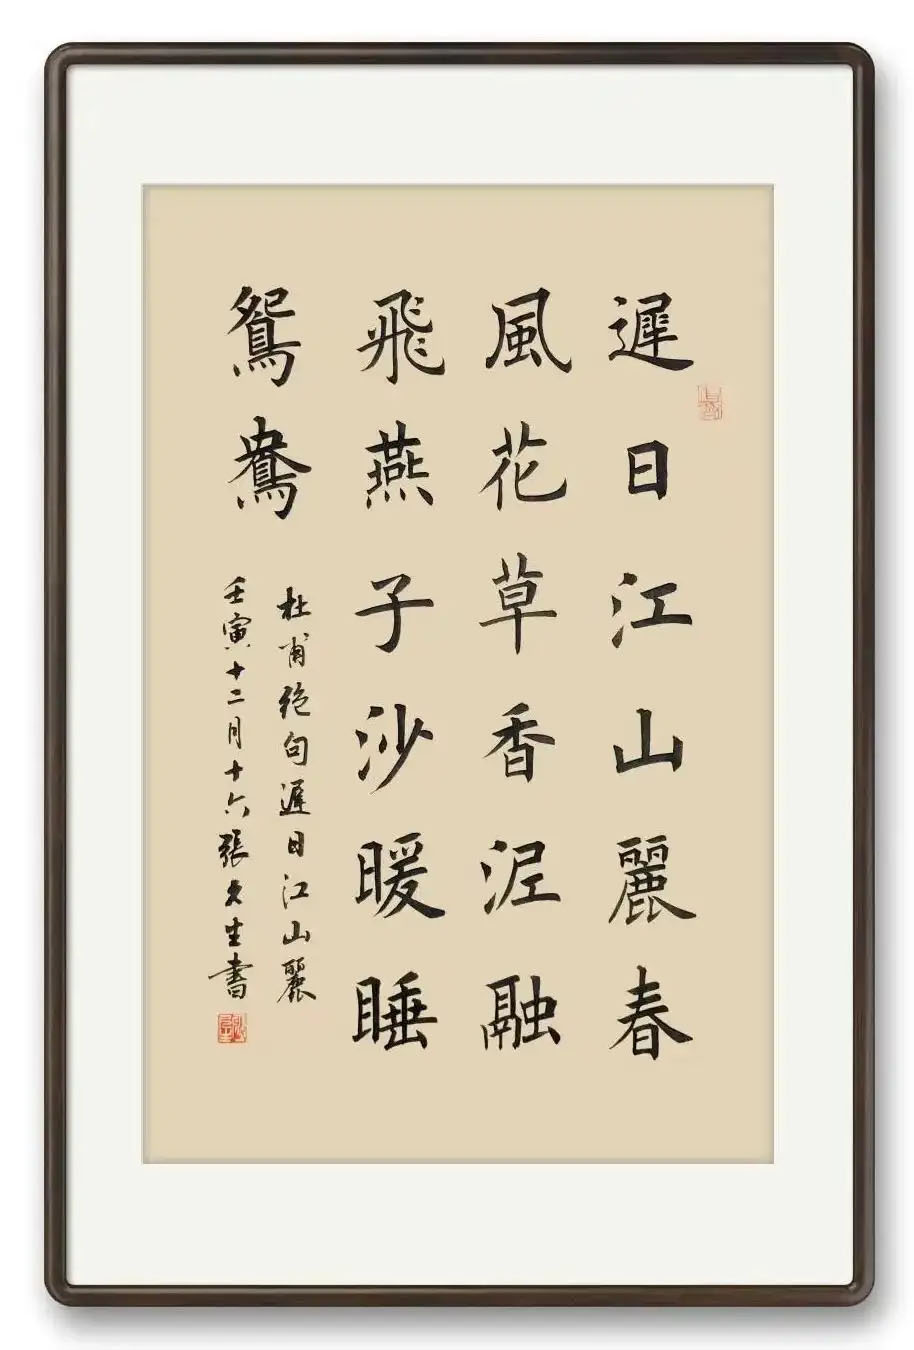 遲日江山麗春
風花草香泥融
飛燕子沙暖睡
鴛鴦
杜甫絕句遲日江山麗
壬寅十二月十六張生書